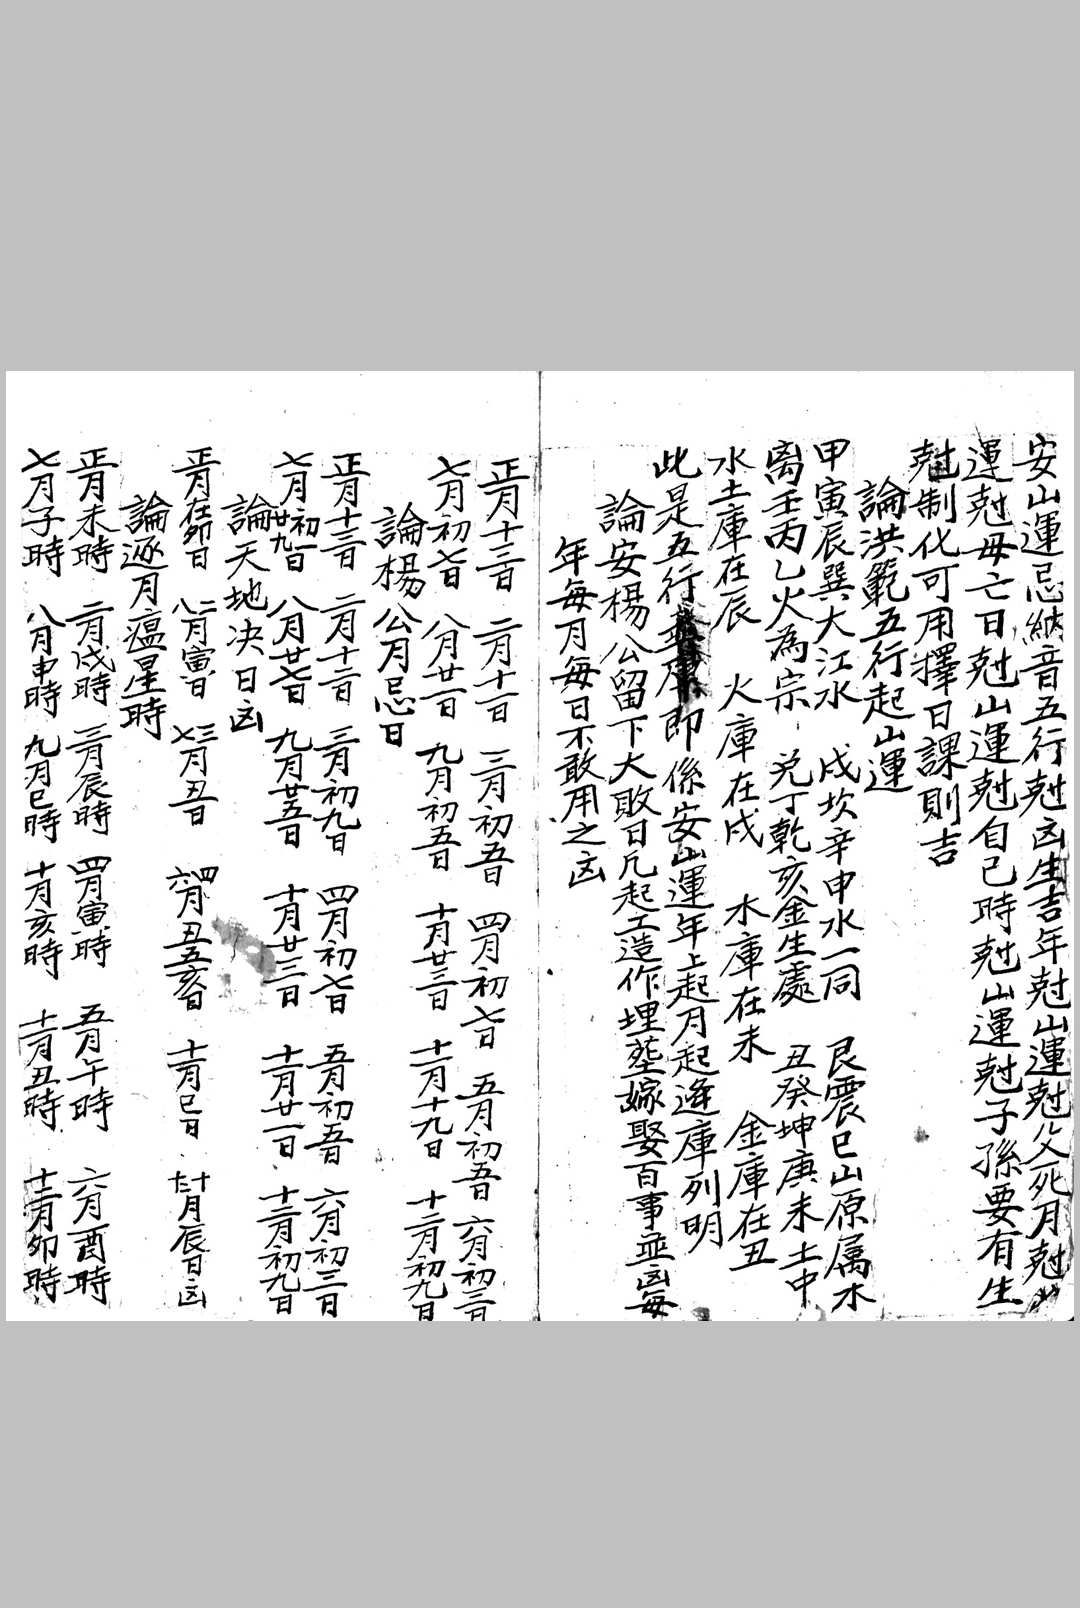 安山運忌納音五行尅凶生吉年尅山運尅父死月尅山
運尅母亡日尅山運尅自己時尅山運尅子孫要有生
尅制化可用擇日課則吉
論洪範五行起山運
甲寅辰巽大江水 戌坎辛申水一同 艮震巳山原属木
离壬丙乙火為宗 兑丁乾亥金生處 丑癸坤庚未土中
水土庫在辰 火庫在戌 木庫在未 金庫在丑
此是五行庫即係安山運年上起月起逢庫列明
論安楊公留下大敗日凡起工造作埋塟嫁娶百事並凶每
年每月每日不敢用之凶
正月十三日 二月十一日 三月初五日 四月初七日 五月初五日 六月初三日
七月初七日 八月廿一日 九月初五日 十月廿三日 十一月十九日 十二月初九日
論楊公月忌日
正月十三日 二月十一日 三月初九日 四月初七日 五月初五日 六月初三日
七月初一日廿九 八月廿七日 九月廿五日 十月廿三日 十一月廿一日 十二月初九日
論天地决日凶
正月在卯日 二八月寅日 三七月丑日 四六月丑五亥日 十一月巳日 十十二月辰日凶
論逐月瘟星時
正月未時 二月戌時 三月辰時 四月寅時 五月午時 六月酉時
七月子時 八月申時 九月巳時 十月亥時 十一月丑時 十二月卯時